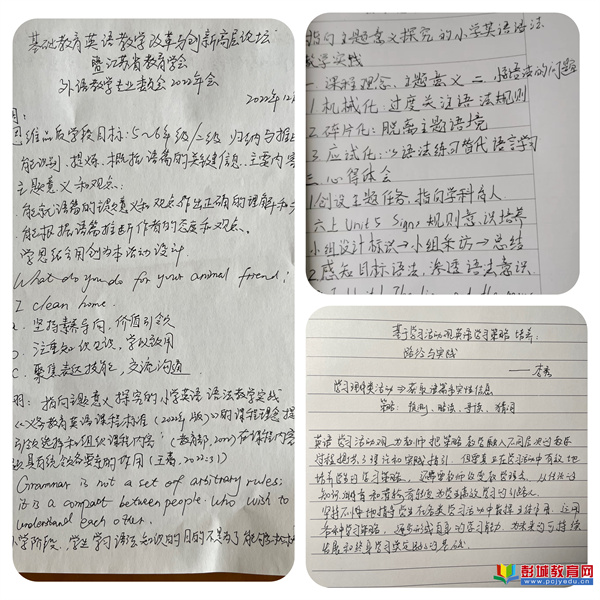 基础教育英语教学改革与创新高层论坛
暨江苏省教育学会
外语教学专业委员会2022年会
2022年12月
思维品质学段目标:5~6年级/二级 归纳与推
能识别、提炼、概括语篇的关键信息、主要内容
主题意义和观点
能就语篇的主题意义和观点作出正确的理解和
能根据语篇推断作者的态度和观点。
学思结合用创为本活动设计
What do you do for your animal friend:
I clean home.
a. 坚持素养导向,价值引领
b. 注重知识,学以致用
c. 聚焦表达技能,交流沟通
指向主题意义探究的小学英语语法教学实践
《义务教育英语课程标准(2022年版)》的课程理念提
引领选择和组织课程内容"(教育部,2022)在课程内容
具有统领各要素的作用(王蔷,2022:31)
Grammar is not a set of arbitrary rules;
it is a compact between people who wish to
understand each other.
小学阶段,学生学习语法知识的目的不是为了
指向主题意义探究的小学英语语法
教学实践
一 课程观念、主题意义 二 悟语法的问题
1 机械化:过度关注语法规则
2 碎片化:脱离主题语境
3 应试化:以语法练习替代语言学习
三 心得体会
1创设主题任务,指向学科育人
六上Unit 5 Signs 规则意识培养
小组设计标识→小组采访→总结
2.感知目标语法,渗透语法意识.
基于学习活动观英语学习策略培养:
路径与实践
学习理解类活动⇒获取语篇事实性信息
策略:预测、略读、寻读、猜词
英语学习活动观为如何把策略
过程提供了理论和实践指引,但要真正在学习活动中有效地
培养学生的学习策略,还需要教师改变教学理念,从传统的
知识拥有和灌输者转变为学生有效学习的引路人,
坚持不懈地指导学生在各类学习活动中发挥主体作用,运用
各种学习策略,逐步形成自身的学习能力,为未来的可持续
发展和终身学习奠定良好的基础.
彭城教育网
www.pcjyedu.cn